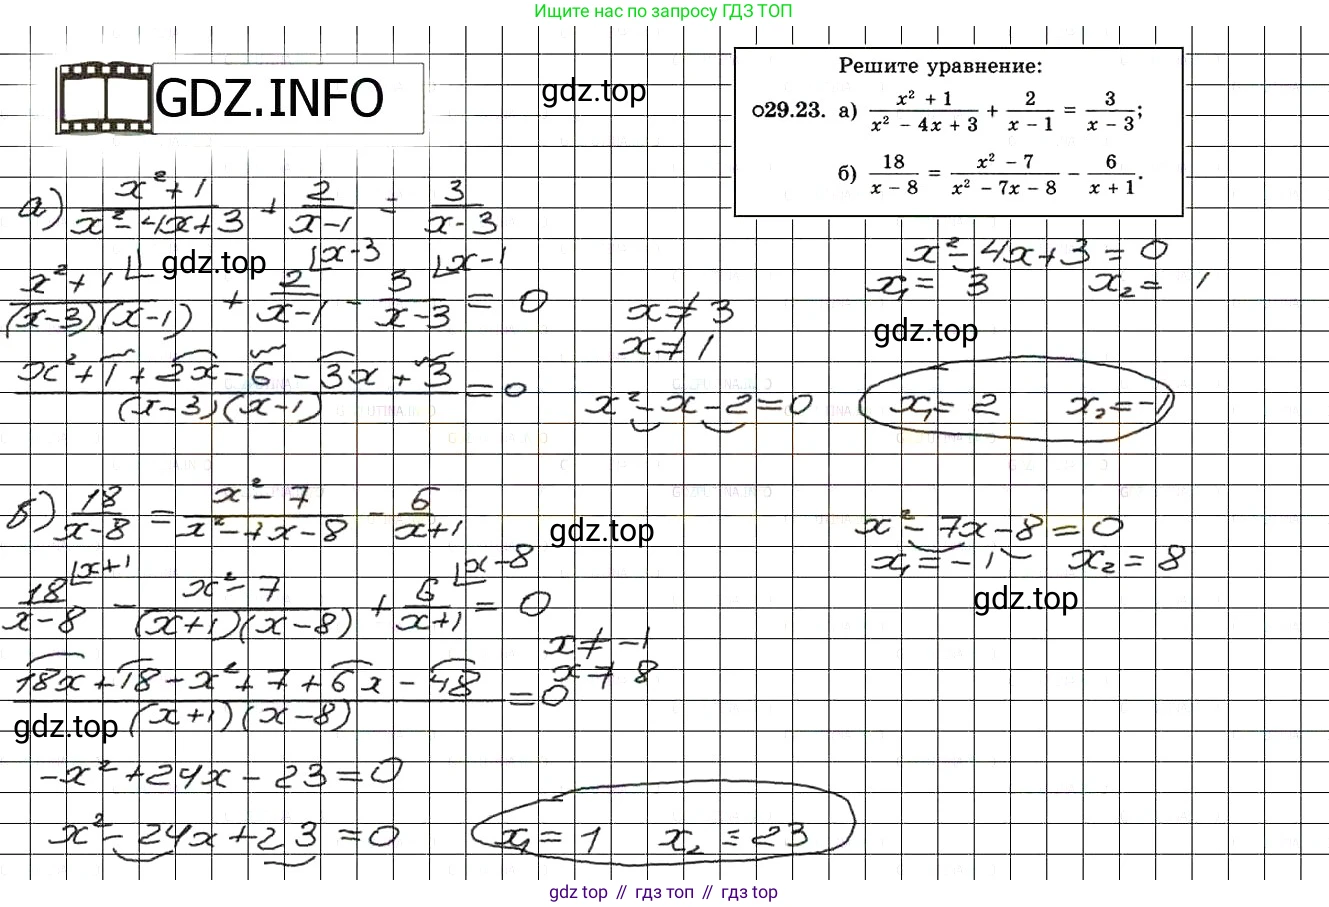 Ищите нас по запросу ГДЗ ТОП
GDZ.INFO
gdz.top
Решите уравнение:
о29.23. а) (x² + 1)/(x² − 4x + 3) + 2/(x − 1) = 3/(x − 3);
б) 18/(x − 8) = (x² − 7)/(x² − 7x − 8) − 6/(x + 1).
а) (x²+1)/(x²−4x+3) + 2/(x−1) = 3/(x−3)
x²−4x+3=0
x₁=3 x₂=1
gdz.top
(x²+1)/((x−3)(x−1)) + 2/(x−1) ⌊x−3 − 3/(x−3) ⌊x−1 = 0
x≠3
x≠1
gdz.top
(x²+1+2x−6−3x+3)/((x−3)(x−1)) = 0
x²−x−2=0
x₁=2 x₂=−1
б) 18/(x−8) = (x²−7)/(x²−7x−8) − 6/(x+1)
gdz.top
x²−7x−8=0
x₁=−1 x₂=8
gdz.top
18/(x−8) ⌊x+1 − (x²−7)/((x+1)(x−8)) + 6/(x+1) ⌊x−8 = 0
x≠−1
x≠8
(18x+18−x²+7+6x−48)/((x+1)(x−8)) = 0
gdz.top
−x²+24x−23=0
x²−24x+23=0
x₁=1 x₂=23
gdz top // гдз топ // gdz top